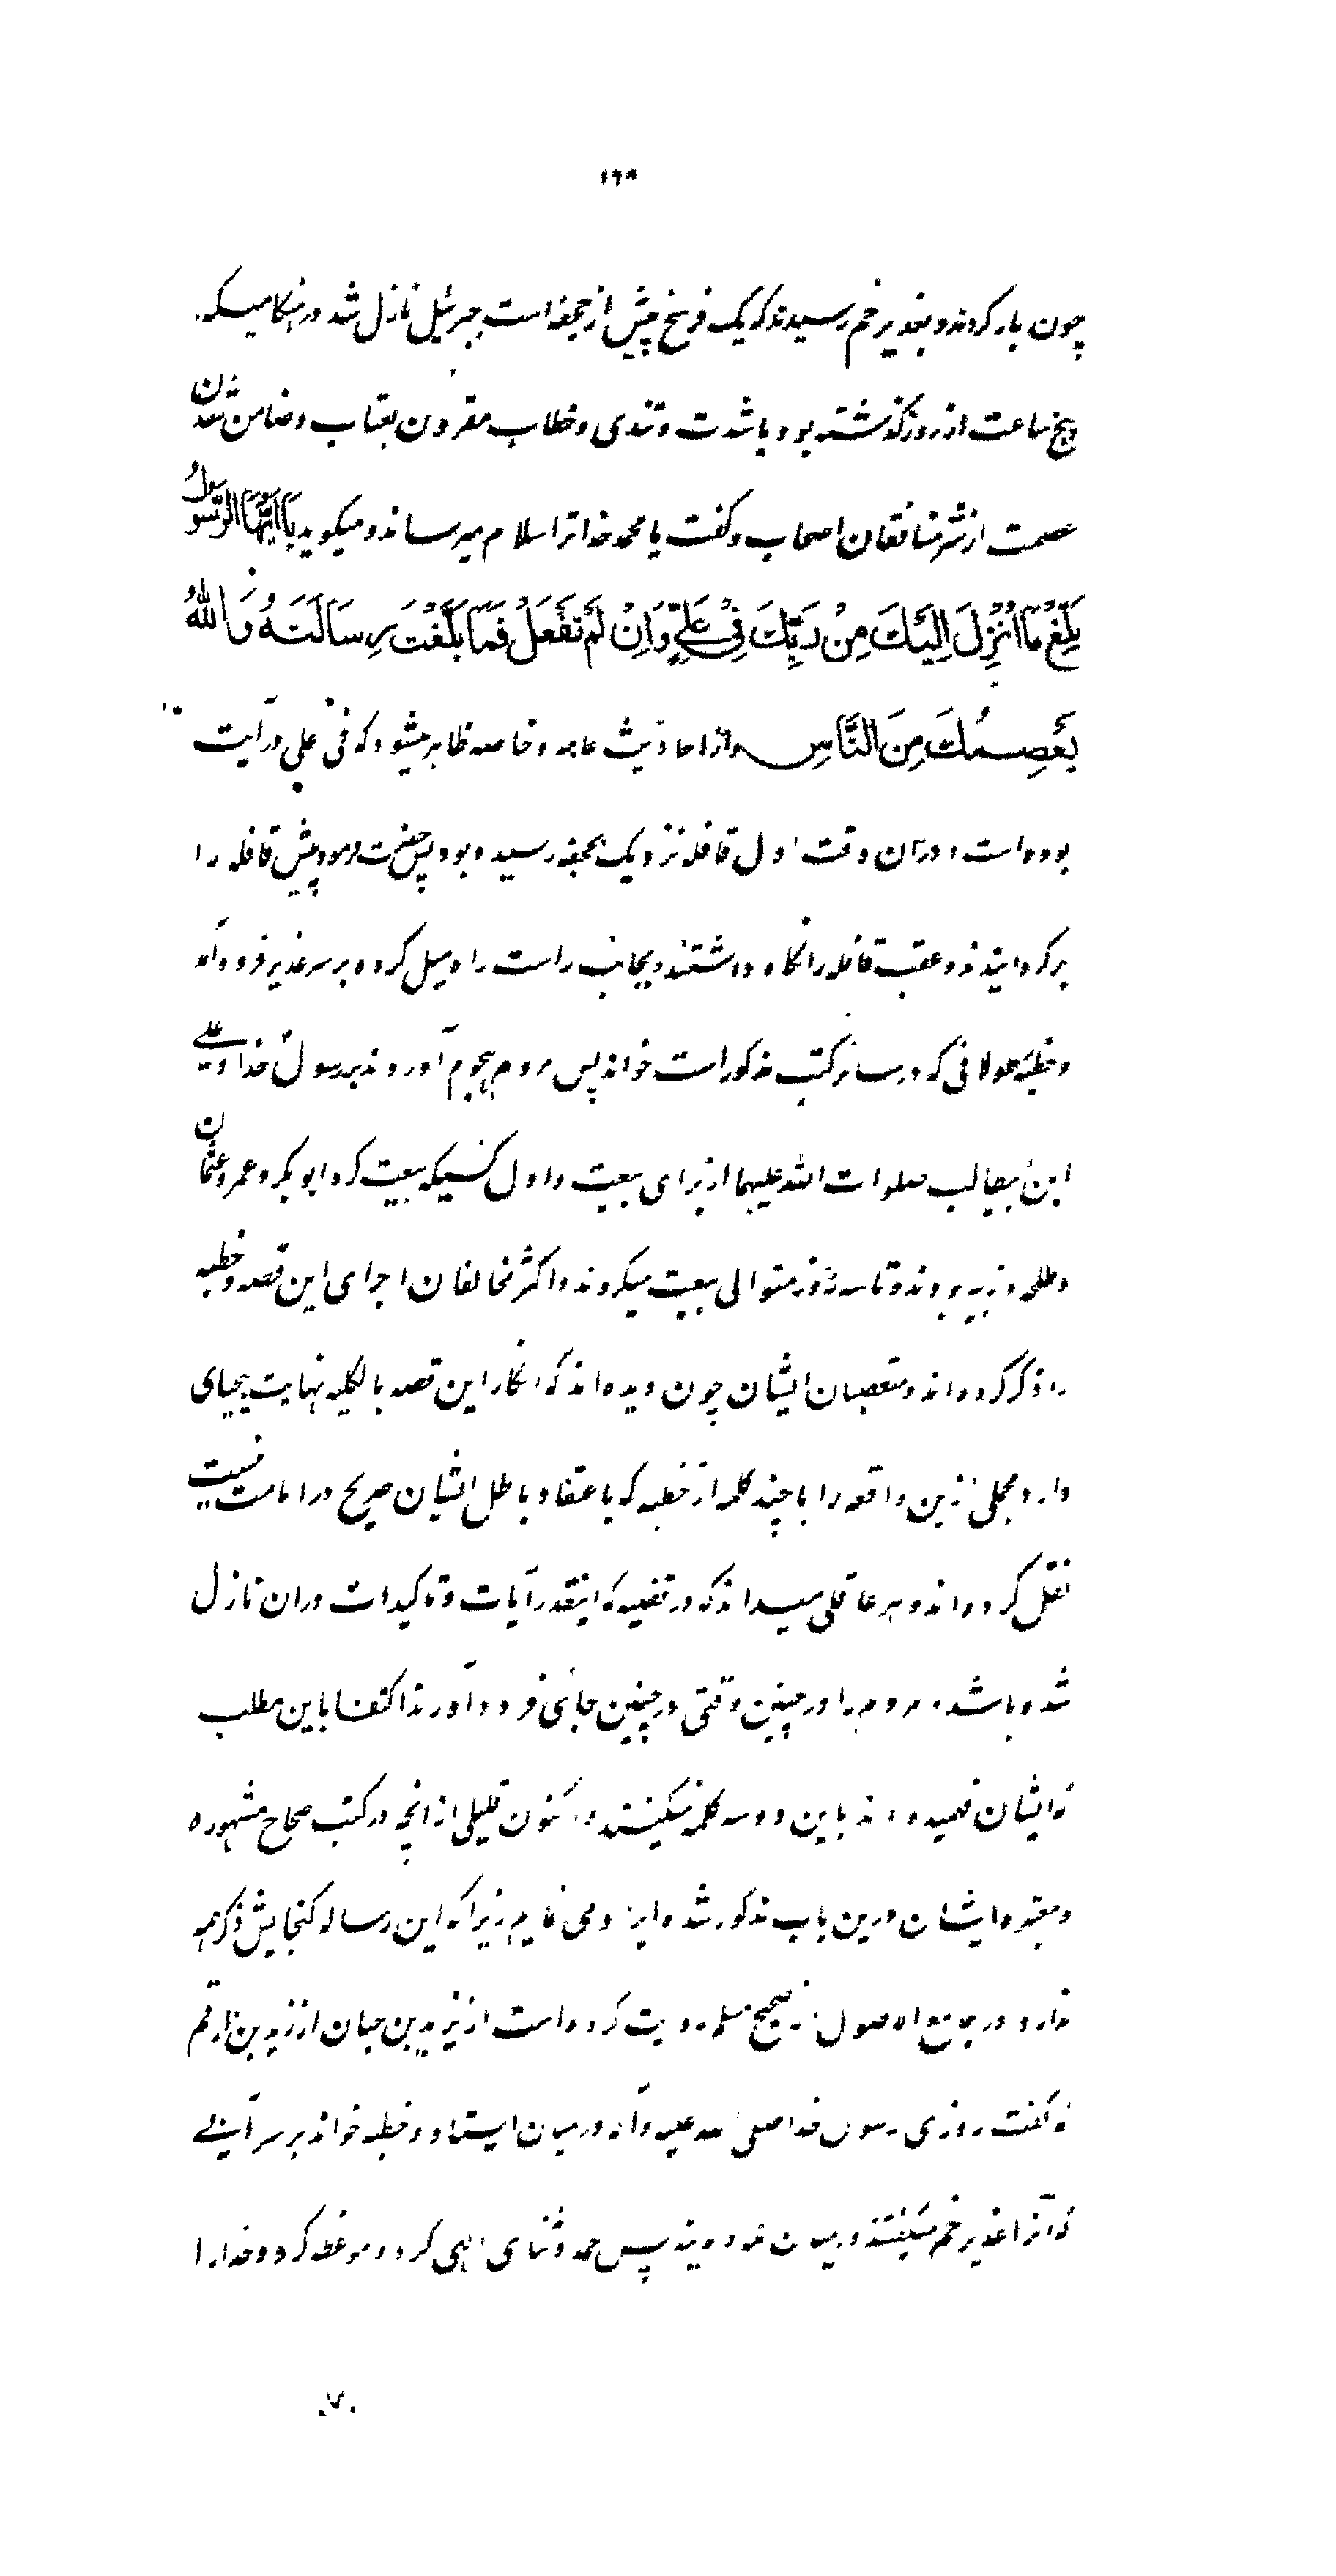 ۱۶۹
چون بار کردند و بغدیر خم رسیدند که یک فرسخ پیش از جحفه است جبرئیل نازل شد در هنکامیکه
پنج ساعت از روز کذشته بود با شدت و تندی و خطاب مقرون بعتاب و ضامن شدن
عصمت از شر منافقان اصحاب و کفت یا محمد خدا ترا سلام میرساند و میکوید یَا اَیُّهَا الرَّسُولُ
بَلِّغْ مَا اُنْزِلَ اِلَیْكَ مِنْ رَبِّكَ فِیْ عَلِیٍّ وَاِنْ لَمْ تَفْعَلْ فَمَا بَلَّغْتَ رِسَالَتَهُ وَاللّٰهُ
یَعْصِمُكَ مِنَ النَّاسِ و از احادیث عامه و خاصه ظاهر میشود که فی علی در آیت
بوده است و دران وقت اول قافله نزدیک بجحفه رسیده بود پس حضرت فرمود پیش قافله را
برکردانیدند و عقب قافله را نکاه داشتند و بجانب راست راه میل کرده بر سر غدیر فرود آمد
و خطبه طولانی که در سائر کتب مذکور است خواند پس مردم هجوم آوردند بر رسول خدا و علی
ابن ابیطالب صلوات الله علیهما از برای بیعت و اول کسیکه بیعت کرد ابوبکر و عمر و عثمان
و طلحه و زبیر بودند و تا سه روز متوالی بیعت میکردند و اکثر مخالفان اجرای این قصه و خطبه
را ذکر کرده اند و متعصبان ایشان چون دیده اند که انکار این قصه بالکلیه نهایت بیحیای
دارد مجملی ازین واقعه را با چند کلمه از خطبه که باعتقاد باطل ایشان صریح در امامت نیست
نقل کرده اند و هر عاقلی میداند که در قضیه که اینقدر آیات و تاکیدات دران نازل
شده باشد و مردم را در چنین وقتی در چنین جائی فرود آورند اکتفا باین مطلب
که ایشان فهمیده اند باین دو سه کلمه نمیکنند و اکنون قلیلی از انچه در کتب صحاح مشهوره
و معتبره ایشان درین باب مذکور شده ایراد می نمایم زیرا که این رساله کنجایش ذکر همه
ندارد در جامع الاصول از صحیح مسلم روایت کرده است از یزید بن حبان از زید بن ارقم
که کفت روزی رسول خدا صلی الله علیه و آله در میان ایستاد و خطبه خواند بر سر آبی
که آنرا غدیر خم میکفتند در میان مکه و مدینه پس حمد و ثنای الهی کرد و موعظه کرد و خدا را
۷۰